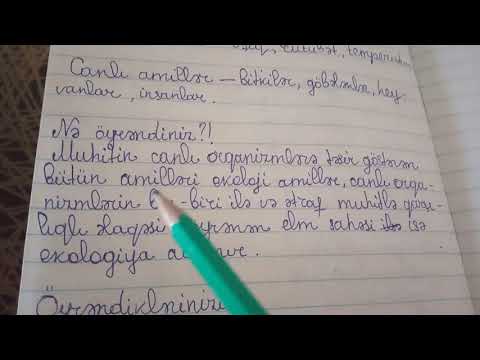 rütubət, temperatur
Canlı amillər – bitkilər, göbələklər, hey
vanlar, insanlar.
Nə öyrəndiniz?!
Muhitin canlı orqanizmlərə təsir göstərən
bütün amilləri ekoloji amillər, canlı orqa-
nizmlərin -biri ilə və ətraf muhitlə qarşı-
lıqlı əlaqəsi elm sahəsi isə
ekologiya